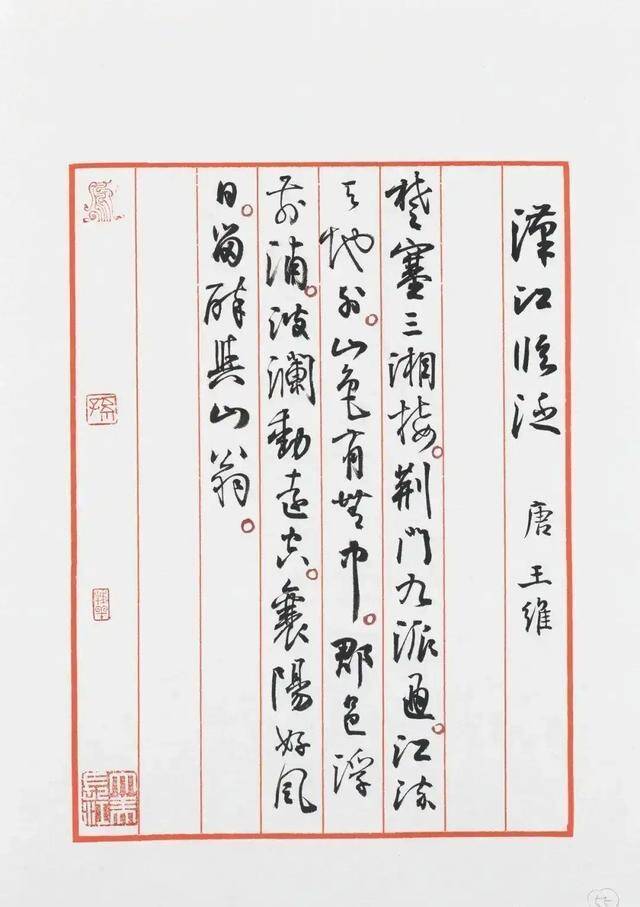 漢江臨泛 唐 王維
楚塞三湘接。荆門九派通。江流
天地外。山色有無中。郡邑浮
前浦。波瀾動遠空。襄陽好風
日。留醉與山翁。
55